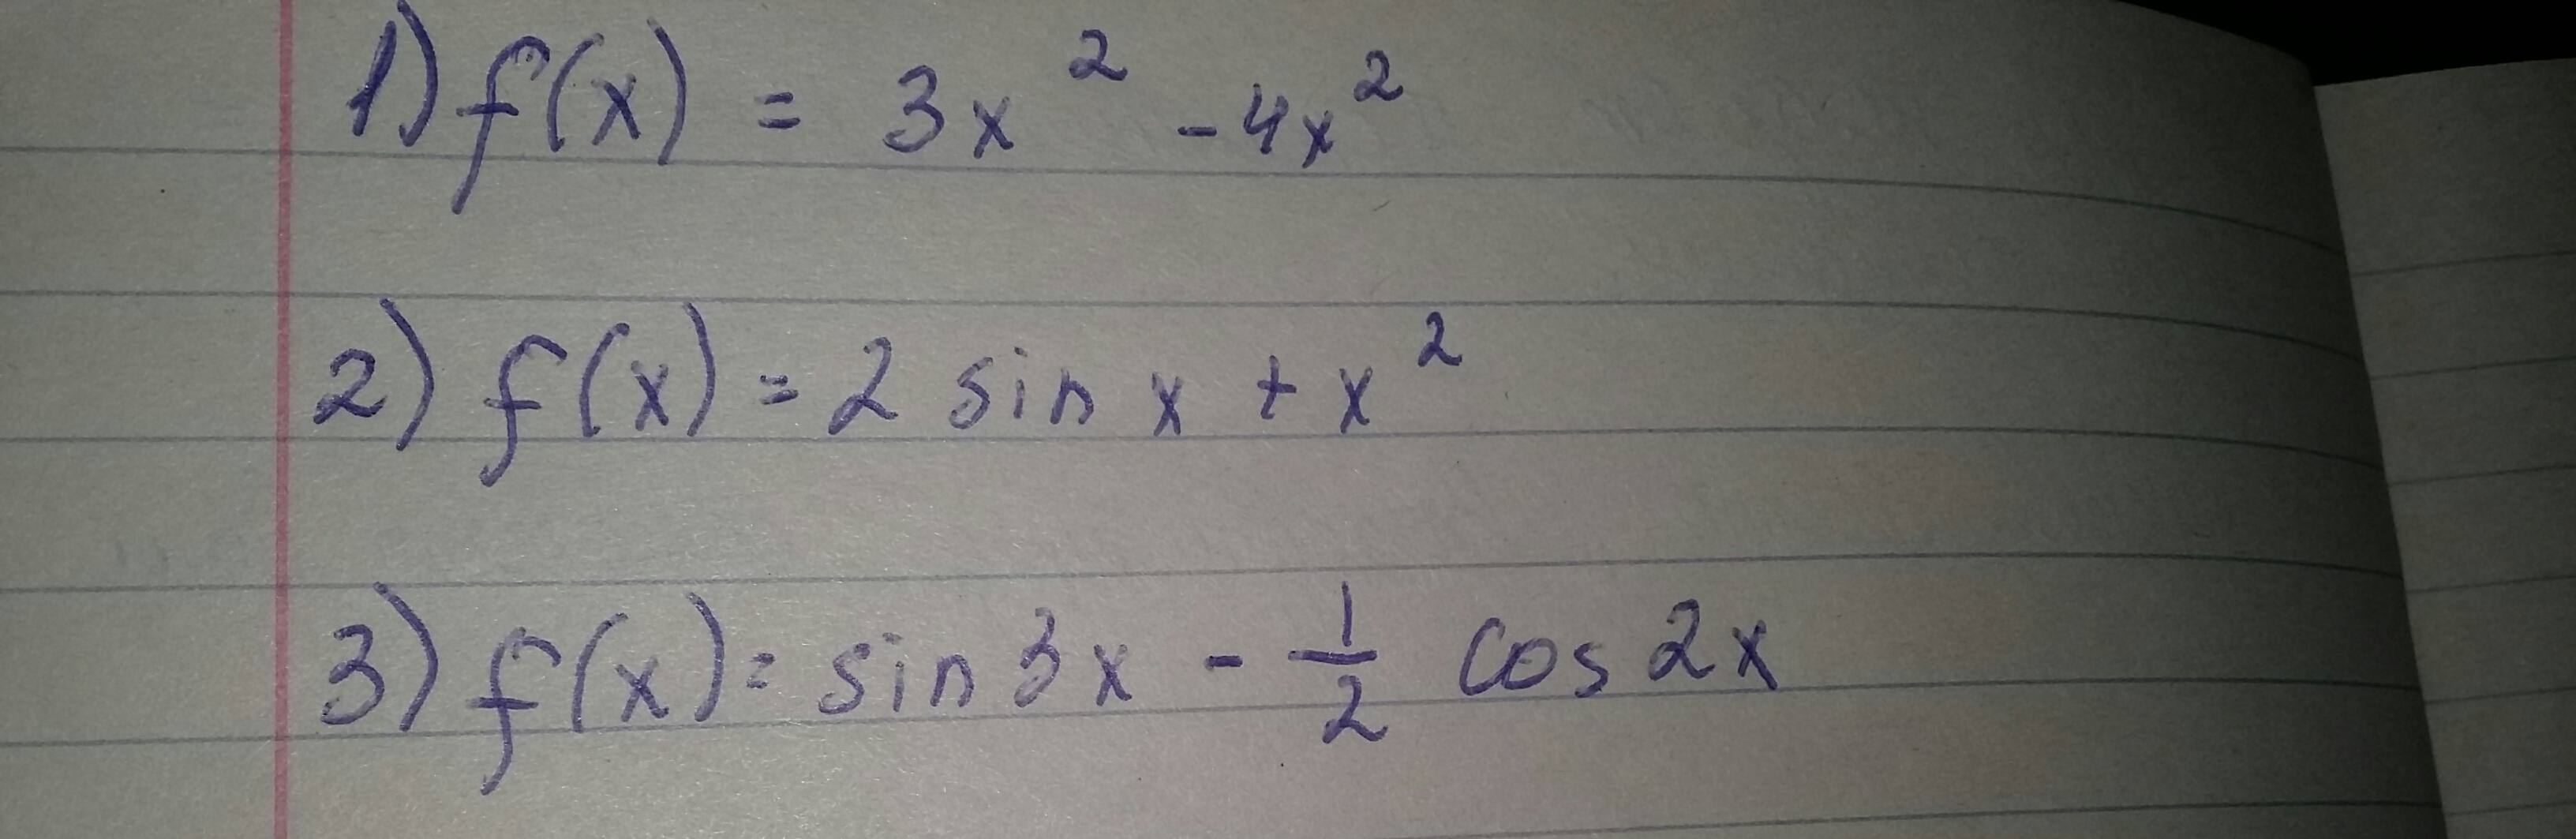 1) f(x) = 3x² - 4x²
2) f(x) = 2 sin x + x²
3) f(x) = sin 3x - 1/2 cos 2x